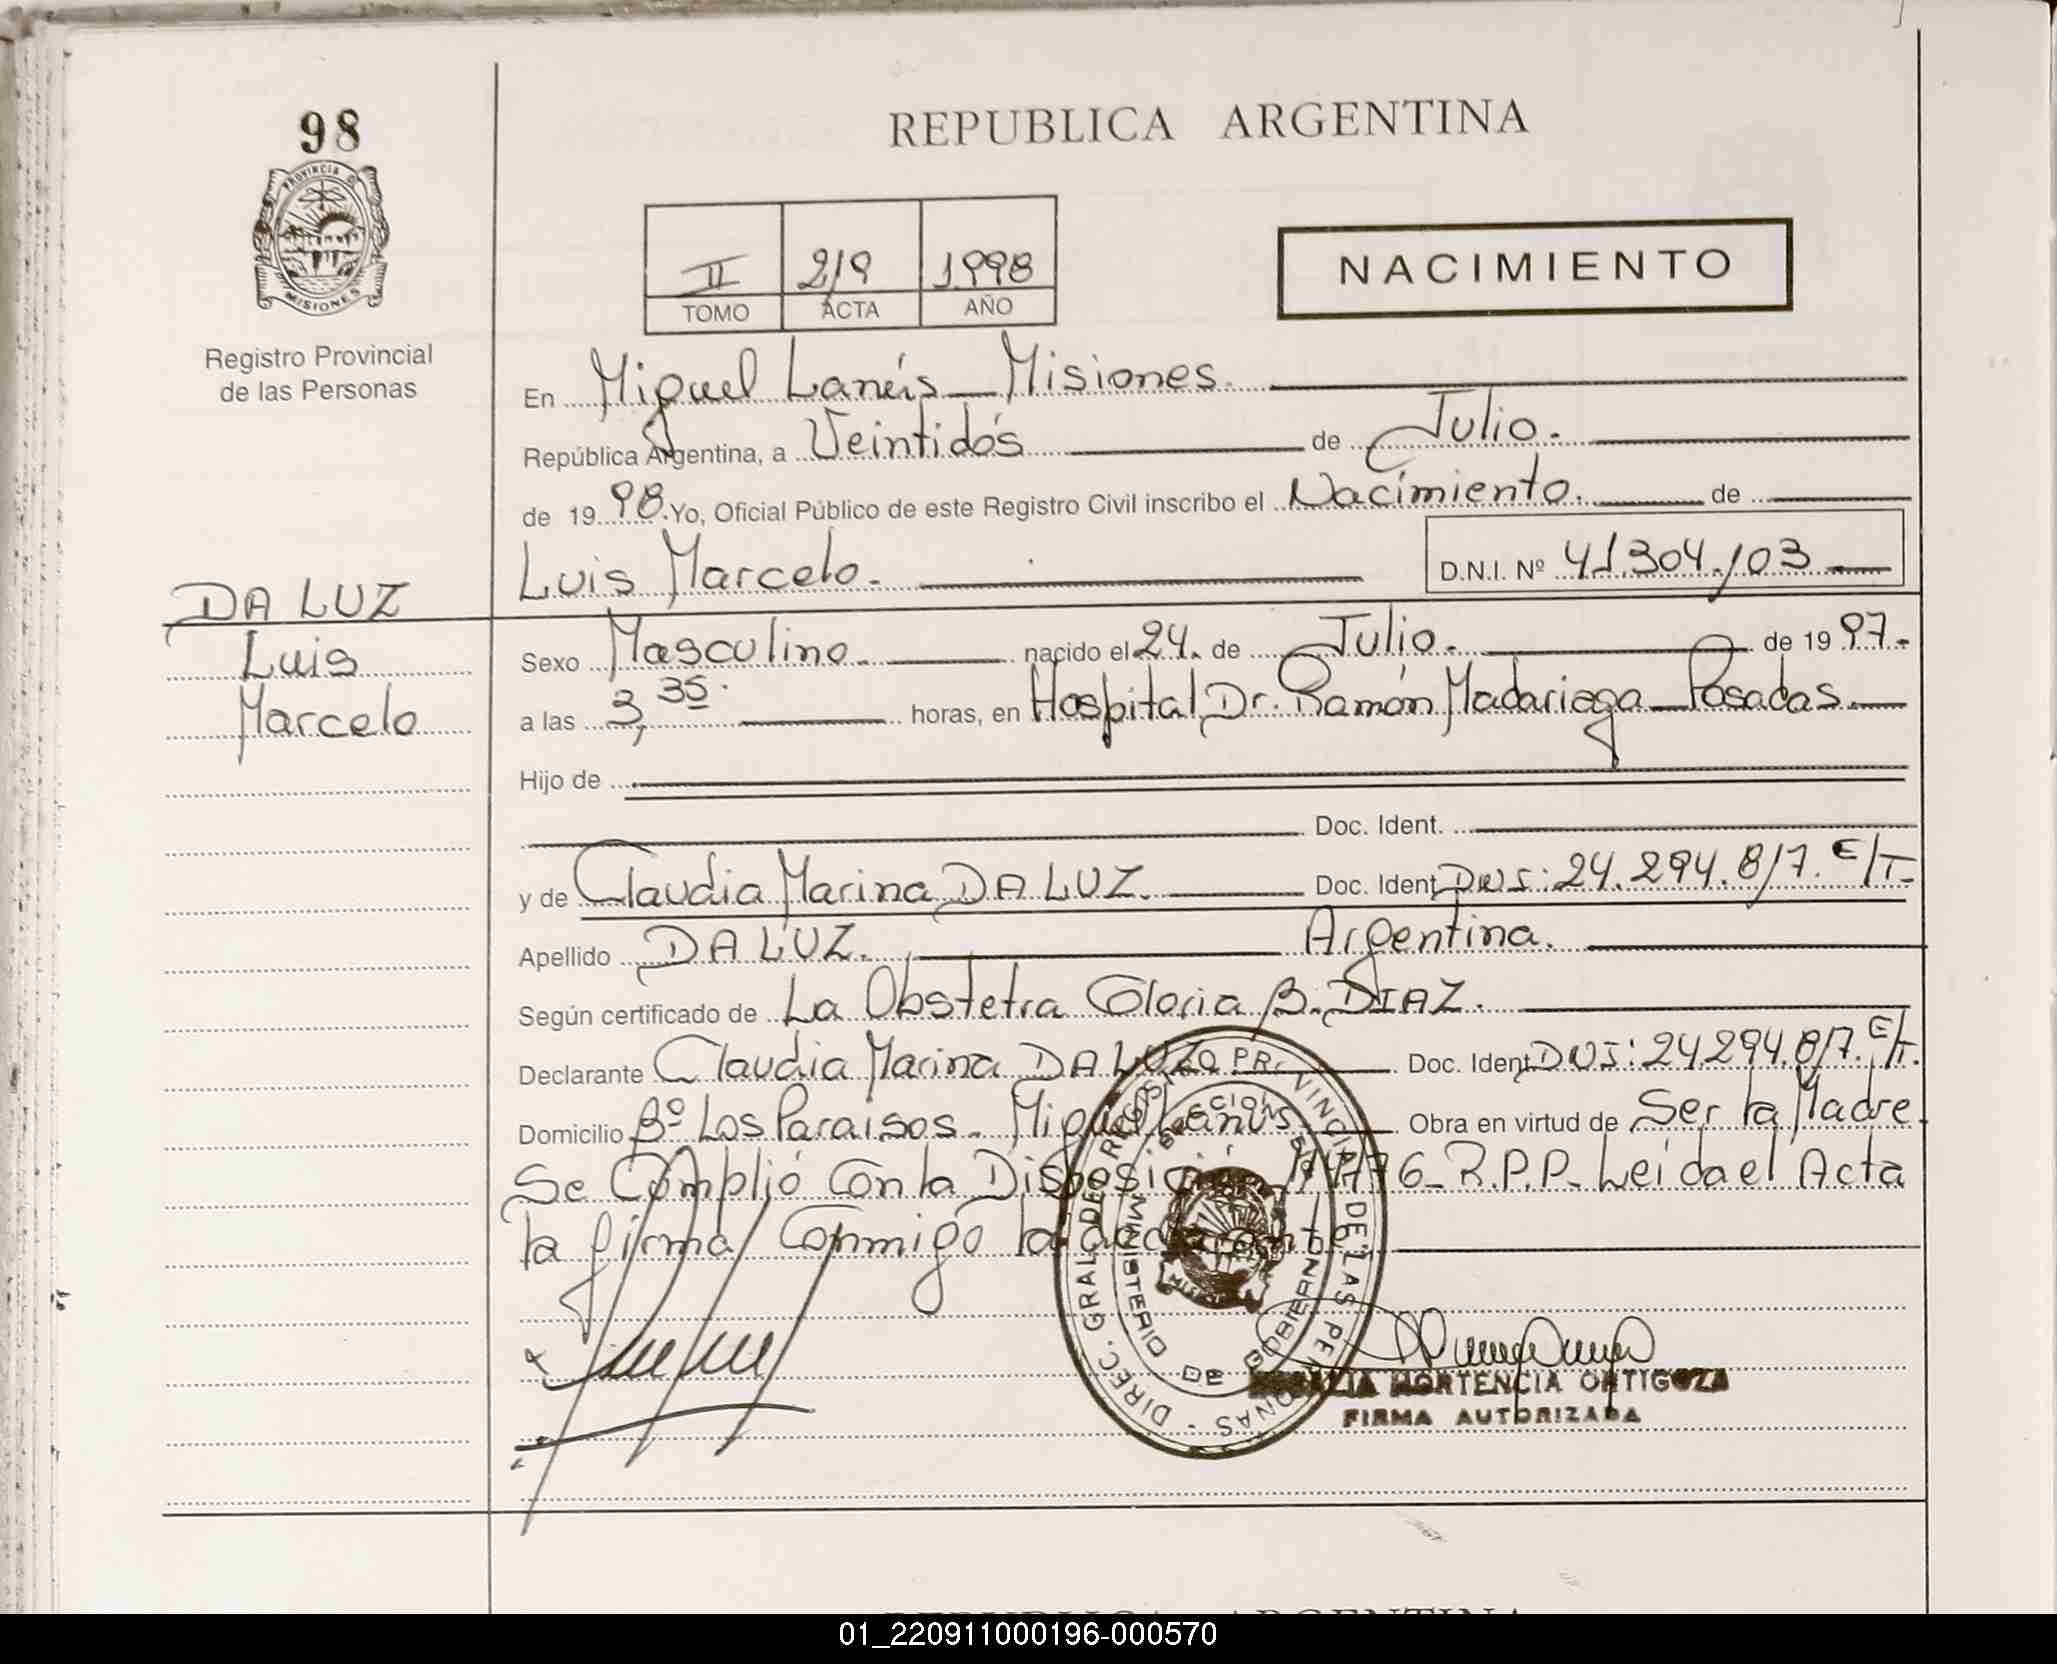 98
REPUBLICA ARGENTINA
PROVINCIA D
MISIONES
Registro Provincial
de las Personas
II 219 1998
TOMO ACTA AÑO
NACIMIENTO
En Miguel Lanús - Misiones.
República Argentina, a Veintidós de Julio.
de 1998. Yo, Oficial Público de este Registro Civil inscribo el Nacimiento. de
Luis Marcelo. D.N.I. Nº 41.304.103
DA LUZ
Luis
Marcelo
Sexo Masculino. nacido el 24. de Julio. de 1997.
a las 3,35. horas, en Hospital Dr. Ramón Madariaga - Posadas.
Hijo de
Doc. Ident.
y de Claudia Marina DA LUZ. Doc. Ident. DNI: 24.294.817. E/T.
Apellido DA LUZ. Argentina.
Según certificado de La Obstetra Gloria B. DIAZ.
Declarante Claudia Marina DA LUZ. Doc. Ident. DNI: 24.294.817. E/T.
Domicilio Bº Los Paraisos. Miguel Lanús Obra en virtud de Ser la Madre.
Se Cumplió Con la Disposición 76 - R.P.P. Leída el Acta
la firma Conmigo la
DIREC. GRAL. DE REGISTRO PROVINCIAL DE LAS PERSONAS
MINISTERIO DE GOBIERNO
HORTENCIA ORTIGOZA
FIRMA AUTORIZADA
REPUBLICA ARGENTINA
01_220911000196-000570